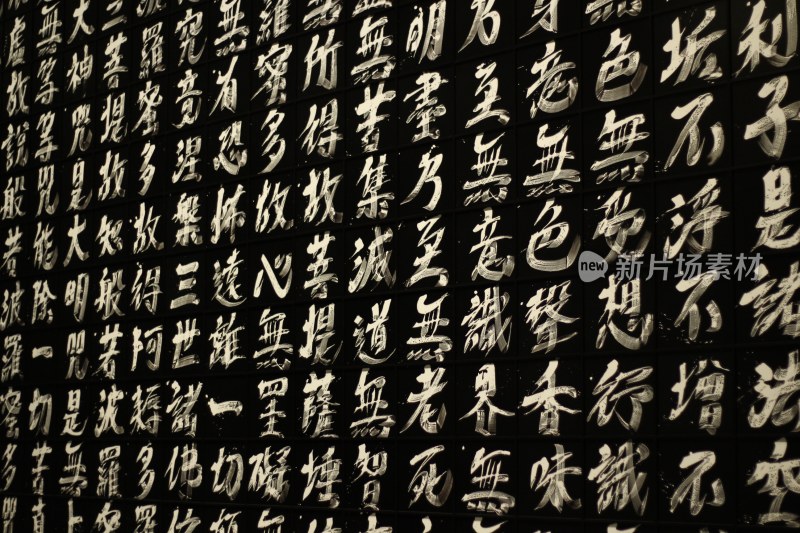 利子是諸法空
垢不淨不增不
色無受想行識
身意無色聲香味
乃至無意識界無
明盡乃至無老死
無苦集滅道無智
所得故菩提薩埵
羅蜜多故心無罣礙無
無有恐怖遠離一切顛
究竟涅槃三世諸佛依
羅蜜多故得阿耨多羅
菩提故知般若波羅蜜
大神咒是大明咒是無上
無等等咒能除一切苦真
虛故說般若波羅蜜多
new 新片场素材